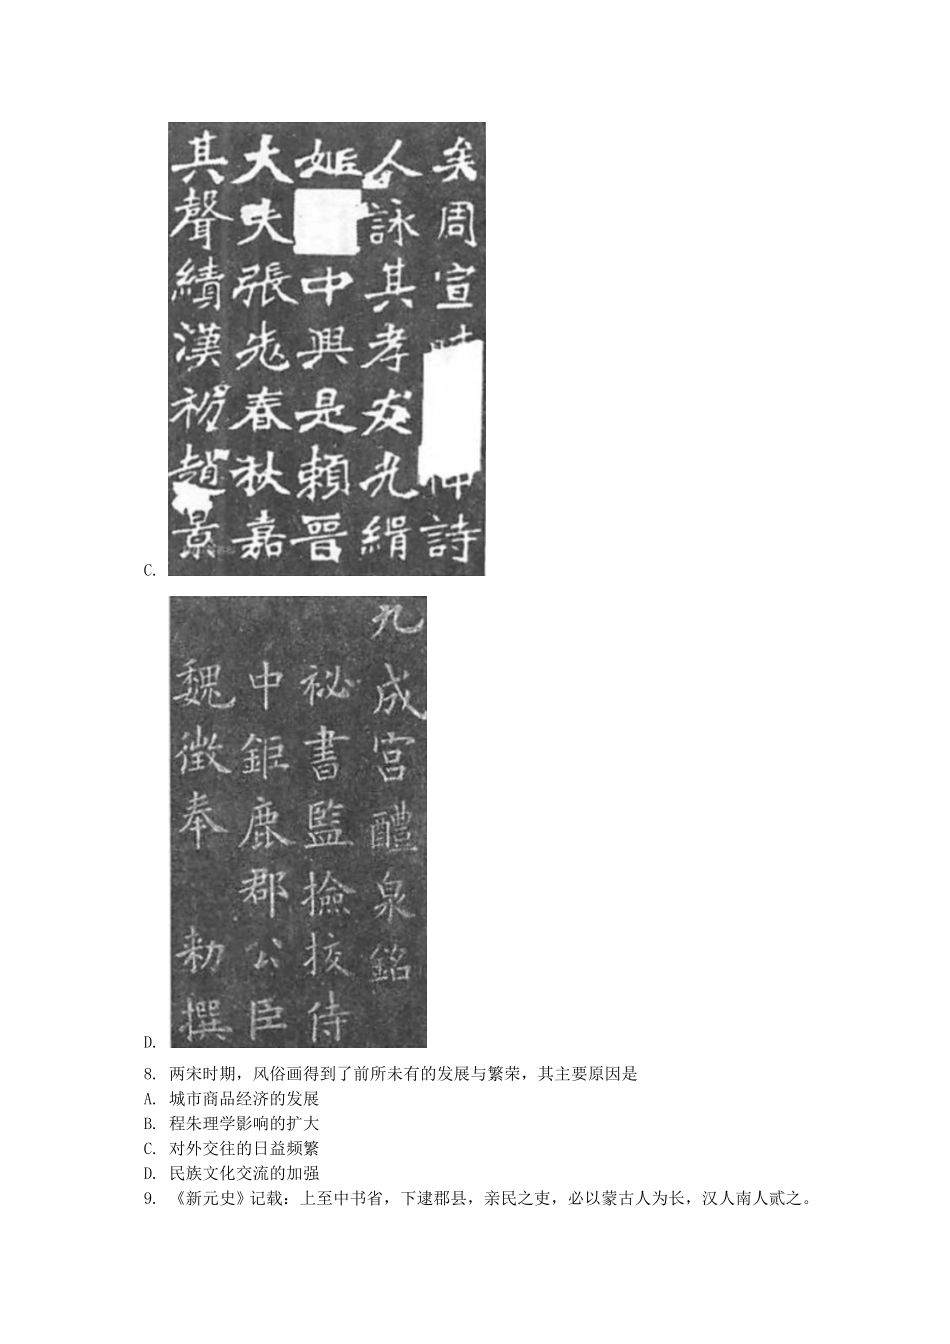 矣周宣 詩
人詠其孝友光緝
姬 中興是賴晉
大夫張老春秋嘉
其聲績漢初趙景
C.
九成宮醴泉銘
祕書監撿挍侍
中鉅鹿郡公臣
魏徵奉 勅撰
D.
8. 两宋时期，风俗画得到了前所未有的发展与繁荣，其主要原因是
A. 城市商品经济的发展
B. 程朱理学影响的扩大
C. 对外交往的日益频繁
D. 民族文化交流的加强
9. 《新元史》记载：上至中书省，下逮郡县，亲民之吏，必以蒙古人为长，汉人南人贰之。